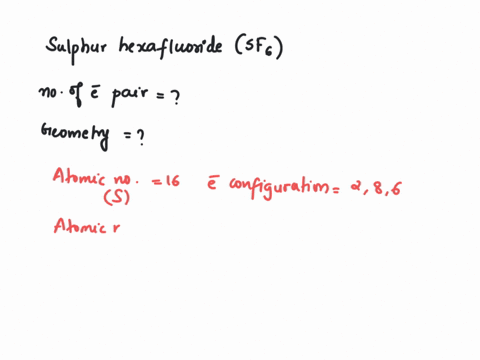 Sulphur hexafluoride (SF₆)
no. of ē pair = ?
Geometry = ?
Atomic no. = 16 ē configuration = 2, 8, 6
(S)
Atomic r